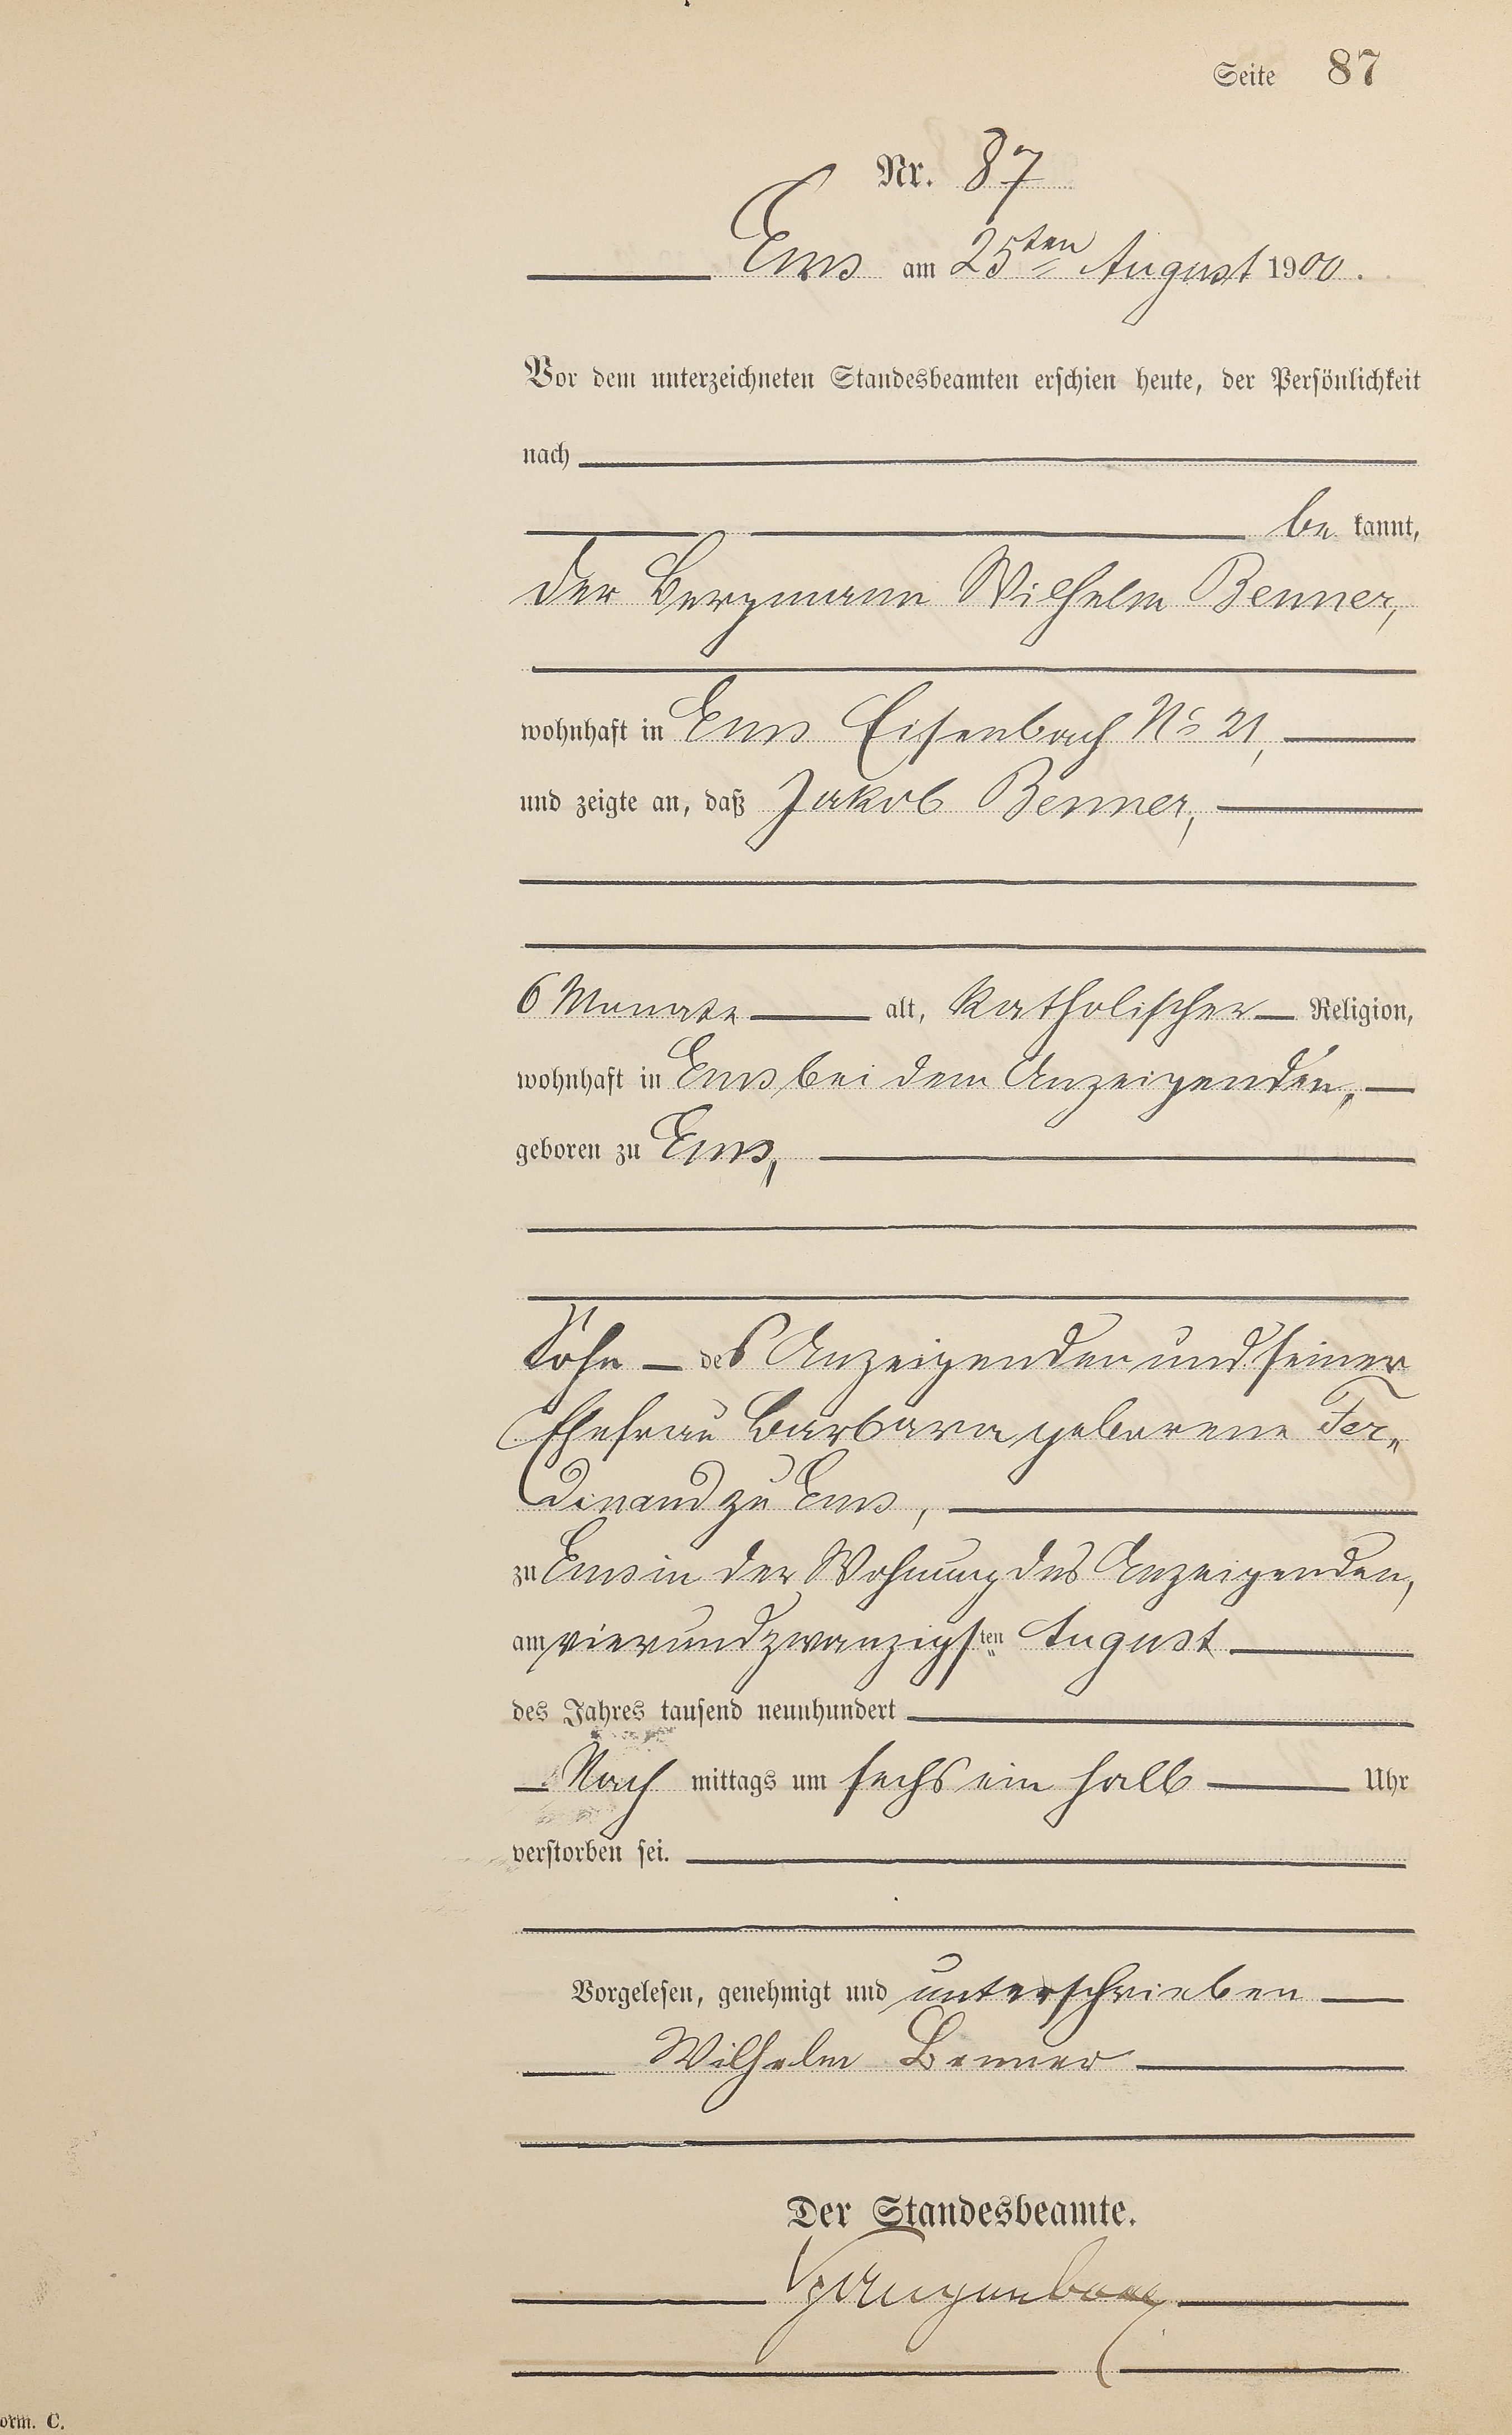 Seite 87
Nr. 87
Ems am 25ten August 1900.
Vor dem unterzeichneten Standesbeamten erschien heute, der Persönlichkeit
nach
be kannt,
der Bergmann Wilhelm Benner,
wohnhaft in Ems Eisenbach No 21,
und zeigte an, daß Jakob Benner,
6 Monate alt, katholischer Religion,
wohnhaft in Ems bei dem Anzeigenden,
geboren zu Ems,
Sohn des Anzeigenden und seiner
Ehefrau Barbara geborene Fer„
dinand zu Ems,
zu Ems in der Wohnung des Anzeigenden,
am vierundzwanzigsten August
des Jahres tausend neunhundert
Nach mittags um sechs ein halb Uhr
verstorben sei.
Vorgelesen, genehmigt und unterschrieben
Wilhelm Benner
Der Standesbeamte.
orm. C.